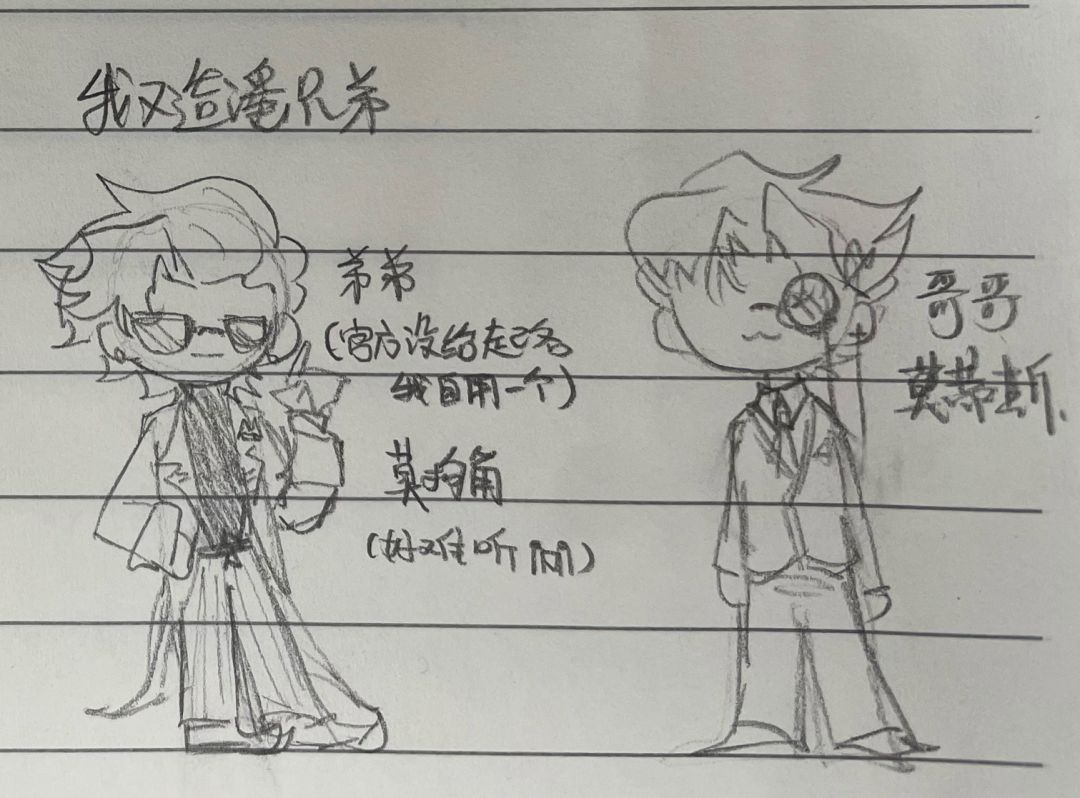 我又洽潘兄弟
弟弟
(官方没给起名
我自用一个)
莫拘角
(好难听啊)
哥哥
莫蒂斯.